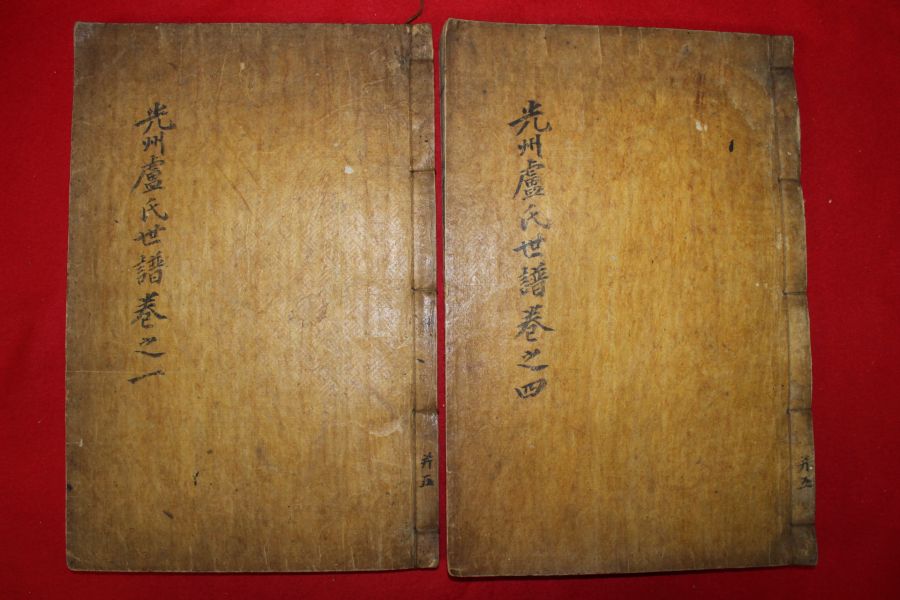 光州盧氏世譜卷之一
共五
光州盧氏世譜卷之四
共五